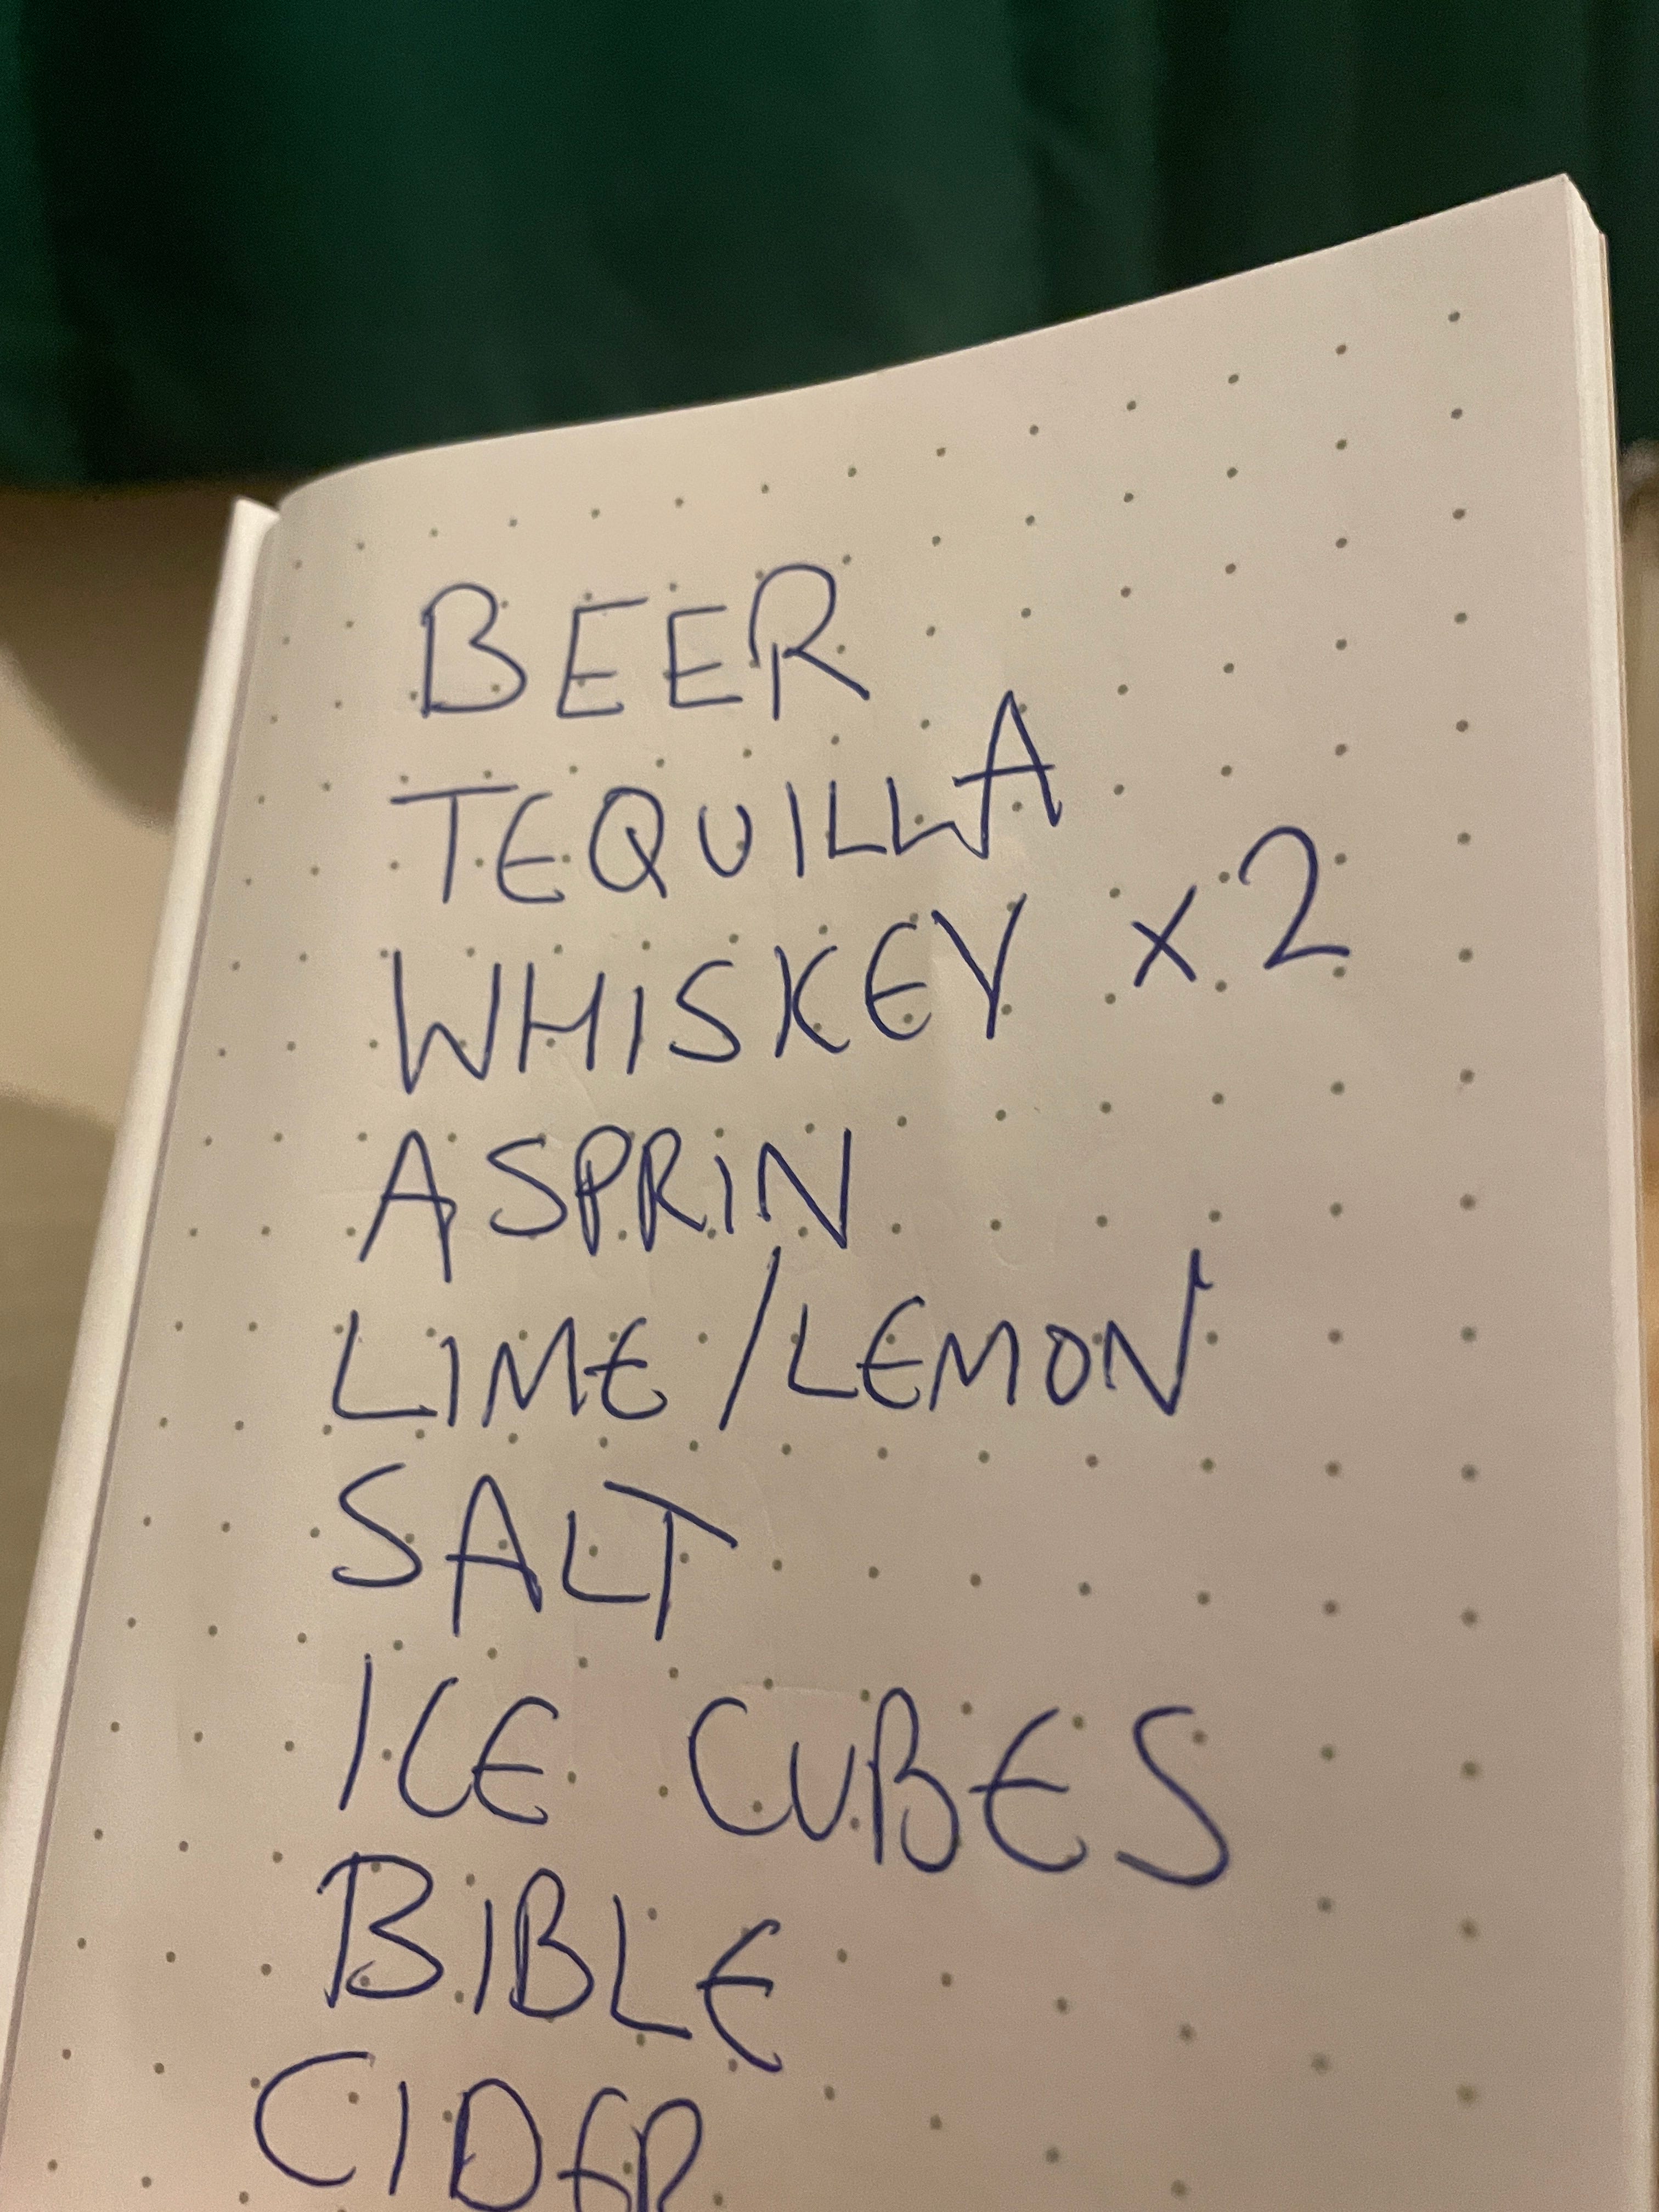 BEER
TEQUILLA
WHISKEY x2
ASPRIN
LIME/LEMON
SALT
ICE CUBES
BIBLE
CIDER